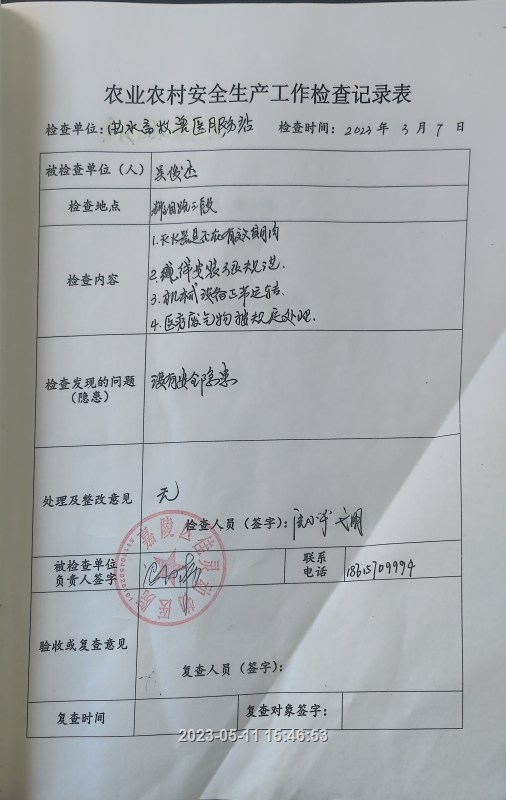 农业农村安全生产工作检查记录表
检查单位:曲水畜牧兽医服务站 检查时间: 2023年 3月 7日
被检查单位(人) 吴俊杰
检查地点 二段
检查内容
1.灭火器是否在有效期内
2.电线安装
3.机械设备正常运转.
4.医疗废弃物按规定处理.
检查发现的问题 没有安全隐患
(隐患)
处理及整改意见 无
检查人员(签字):
被检查单位
负责人签字
联系
电话
18615709994
验收或复查意见
复查人员(签字):
复查时间 复查对象签字:
嘉陵区 动物医院
2023-05-11 15:46:53